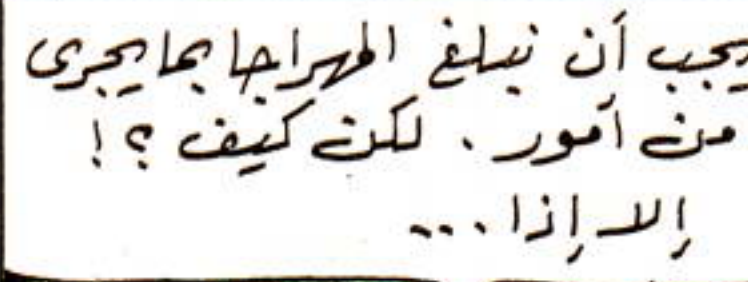 يجب أن نبلغ المهراجا بما يجرى
من أمور . لكن كيف ؟ !
إلا إذا ...